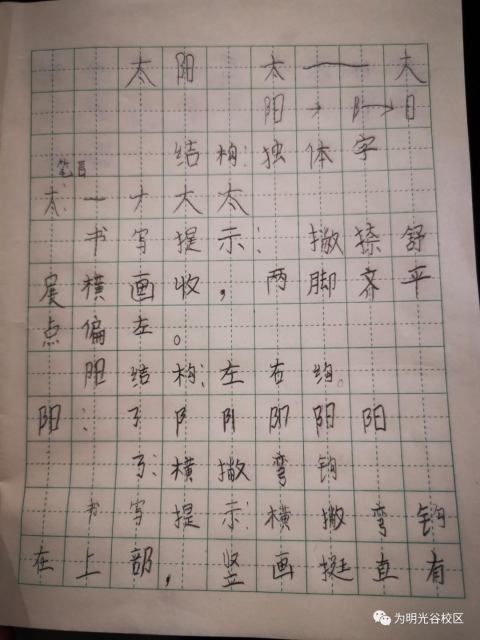 太 阳 太 —— 大
阳 → 阝→ 日
结 构：独 体 字
笔
太：一 ナ 大 太
书 写 提 示：撇 捺 舒
展 横 画 收，两 脚 齐 平
点 偏 左。
阳 结 构：左 右 结。
阳：㇌ 阝 阳 阳
㇌：横 撇 弯 钩
书 写 提 示：横 撇 弯 钩
在 上 部，竖 画 挺 直 有
为明光谷校区